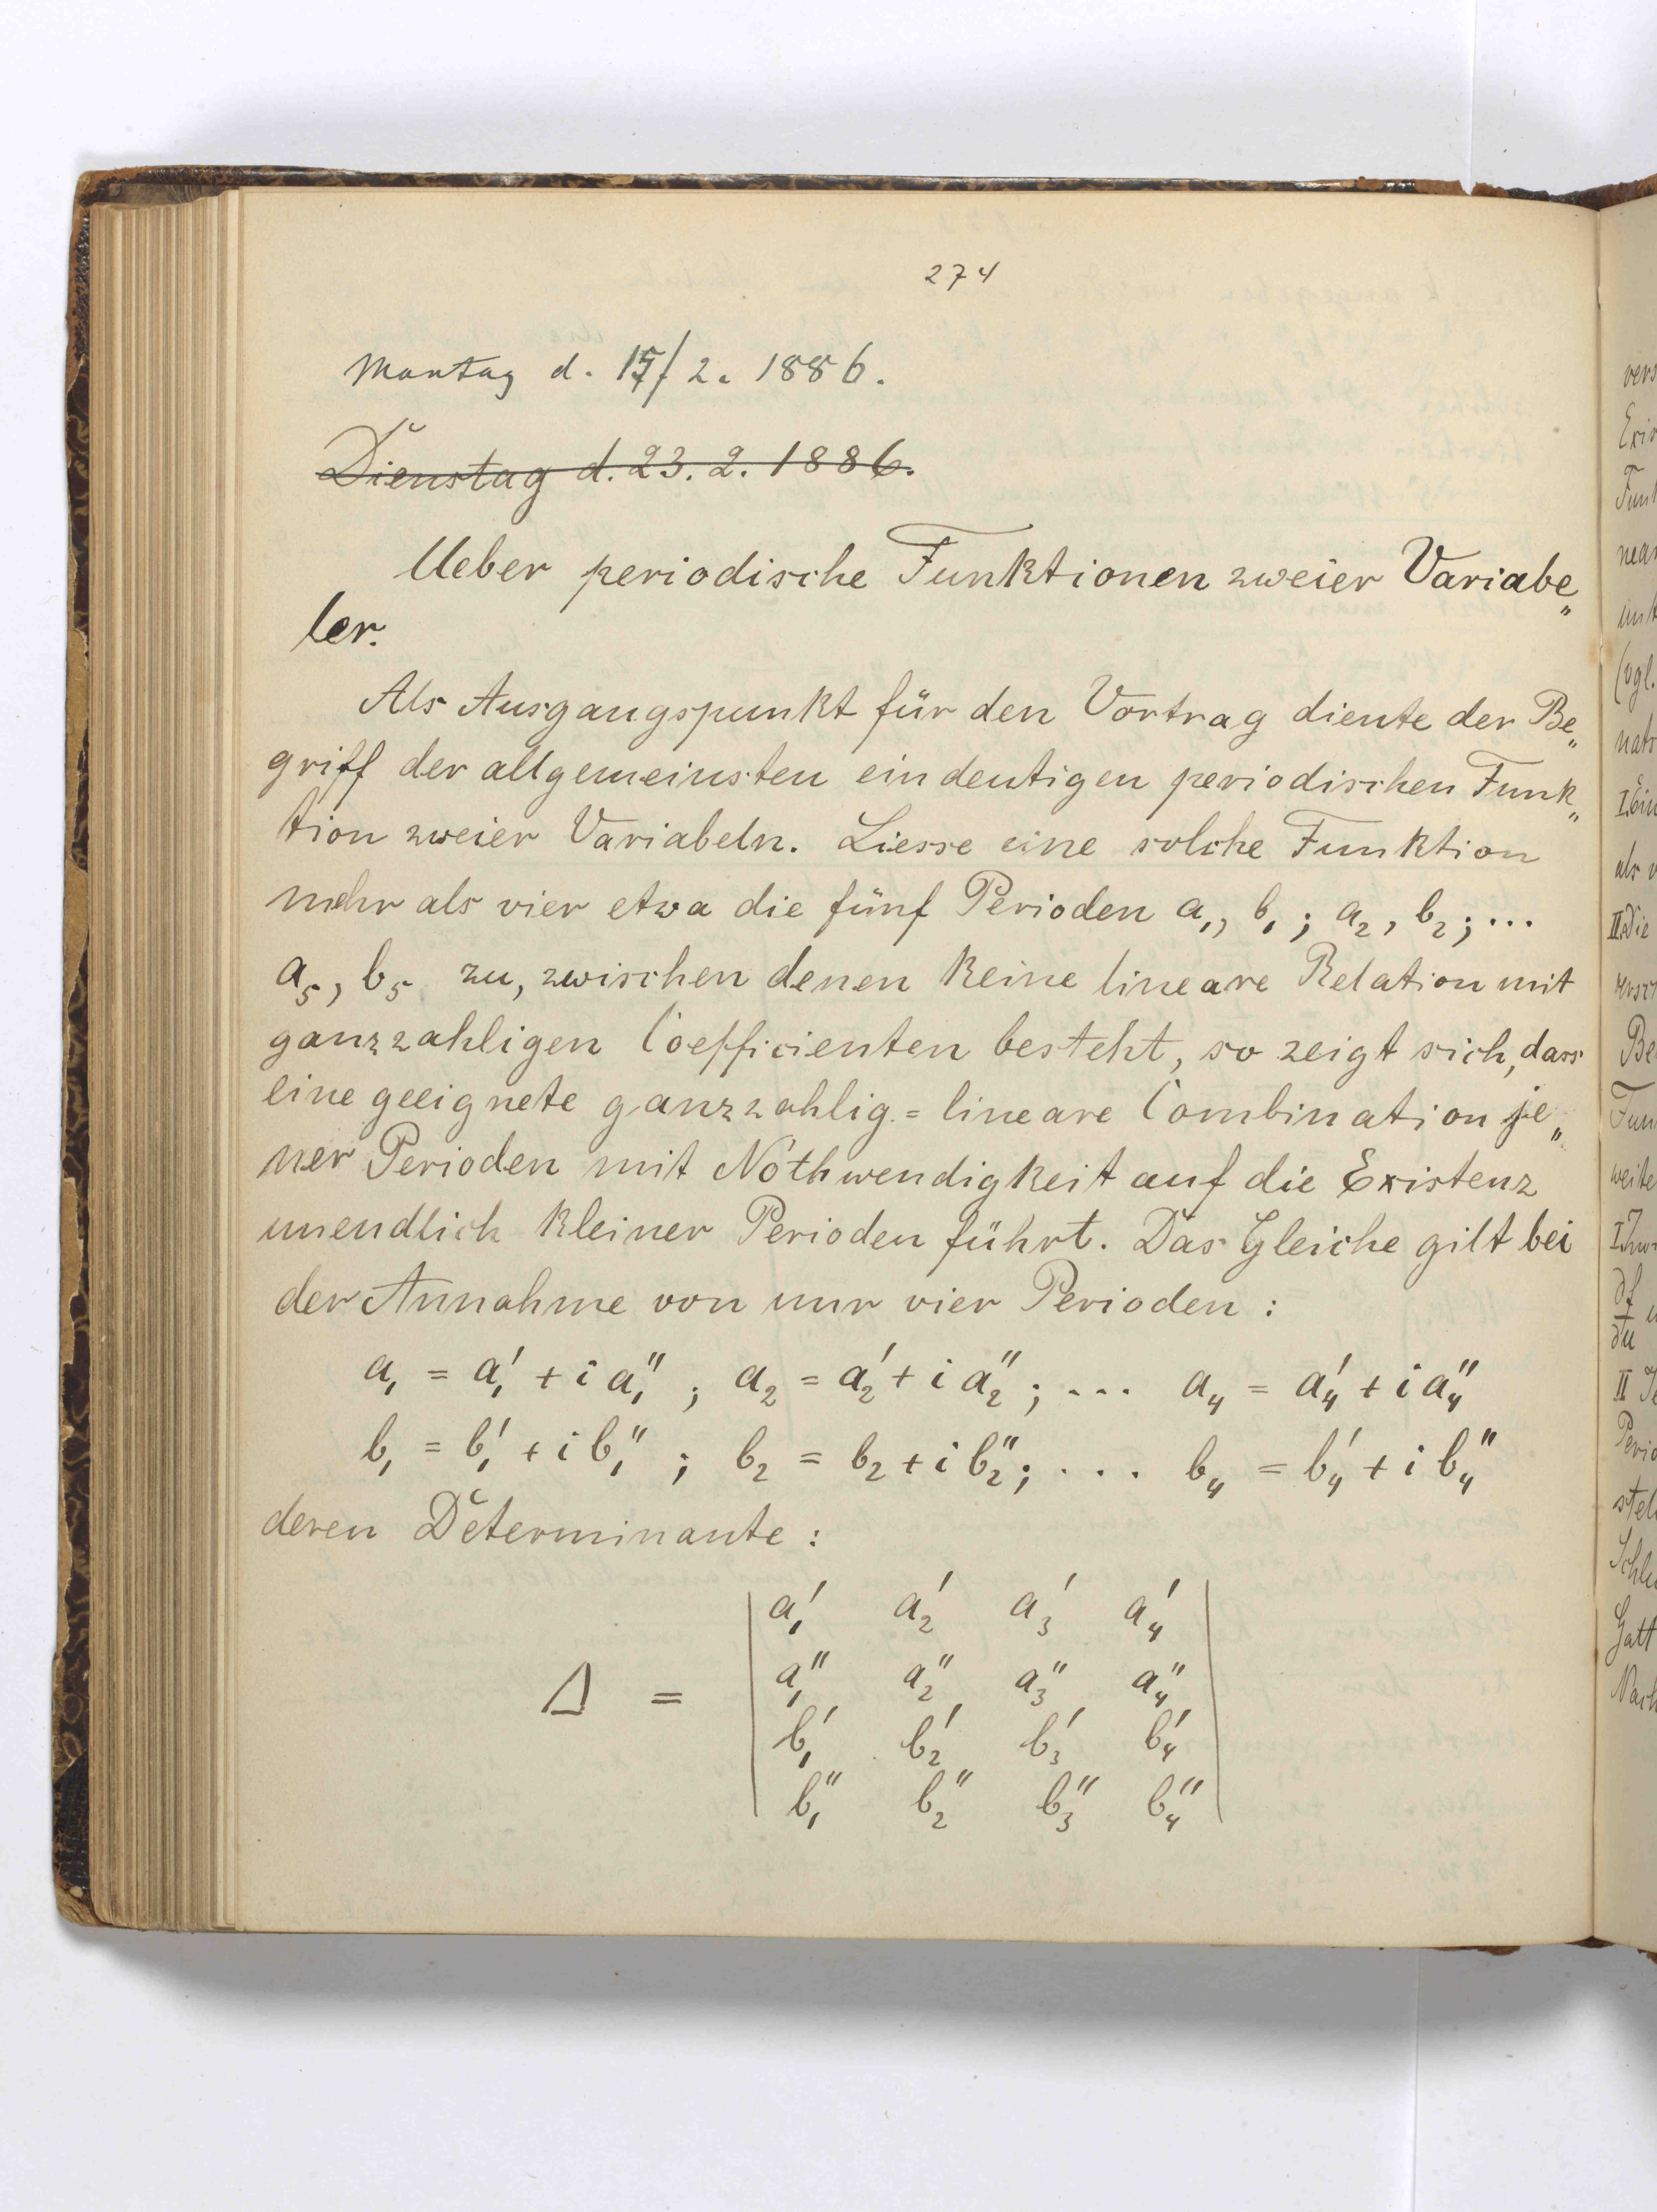 274
Montag d. 15/2. 1886.
Dienstag d. 23. 2. 1886.
Ueber periodische Funktionen zweier Variabe„
ler.
Als Ausgangspunkt für den Vortrag diente der Be„
griff der allgemeinsten eindeutigen periodischen Funk„
tion zweier Variabeln. Liesse eine solche Funktion
mehr als vier etwa die fünf Perioden a₁, b₁; a₂, b₂; ...
a₅, b₅ zu, zwischen denen keine lineare Relation mit
ganzzahligen Coefficienten besteht, so zeigt sich, dass
eine geeignete ganzzahlig = lineare Combination je„
ner Perioden mit Nothwendigkeit auf die Existenz
unendlich kleiner Perioden führt. Das Gleiche gilt bei
der Annahme von nur vier Perioden :
a₁ = a₁' + i a₁'' ; a₂ = a₂' + i a₂'' ; ... a₄ = a₄' + i a₄''
b₁ = b₁' + i b₁'' ; b₂ = b₂ + i b₂'' ; .... b₄ = b₄' + i b₄''
deren Determinante :
Δ = | a₁' a₂' a₃' a₄' |
| a₁'' a₂'' a₃'' a₄'' |
| b₁' b₂' b₃' b₄' |
| b₁'' b₂'' b₃'' b₄'' |